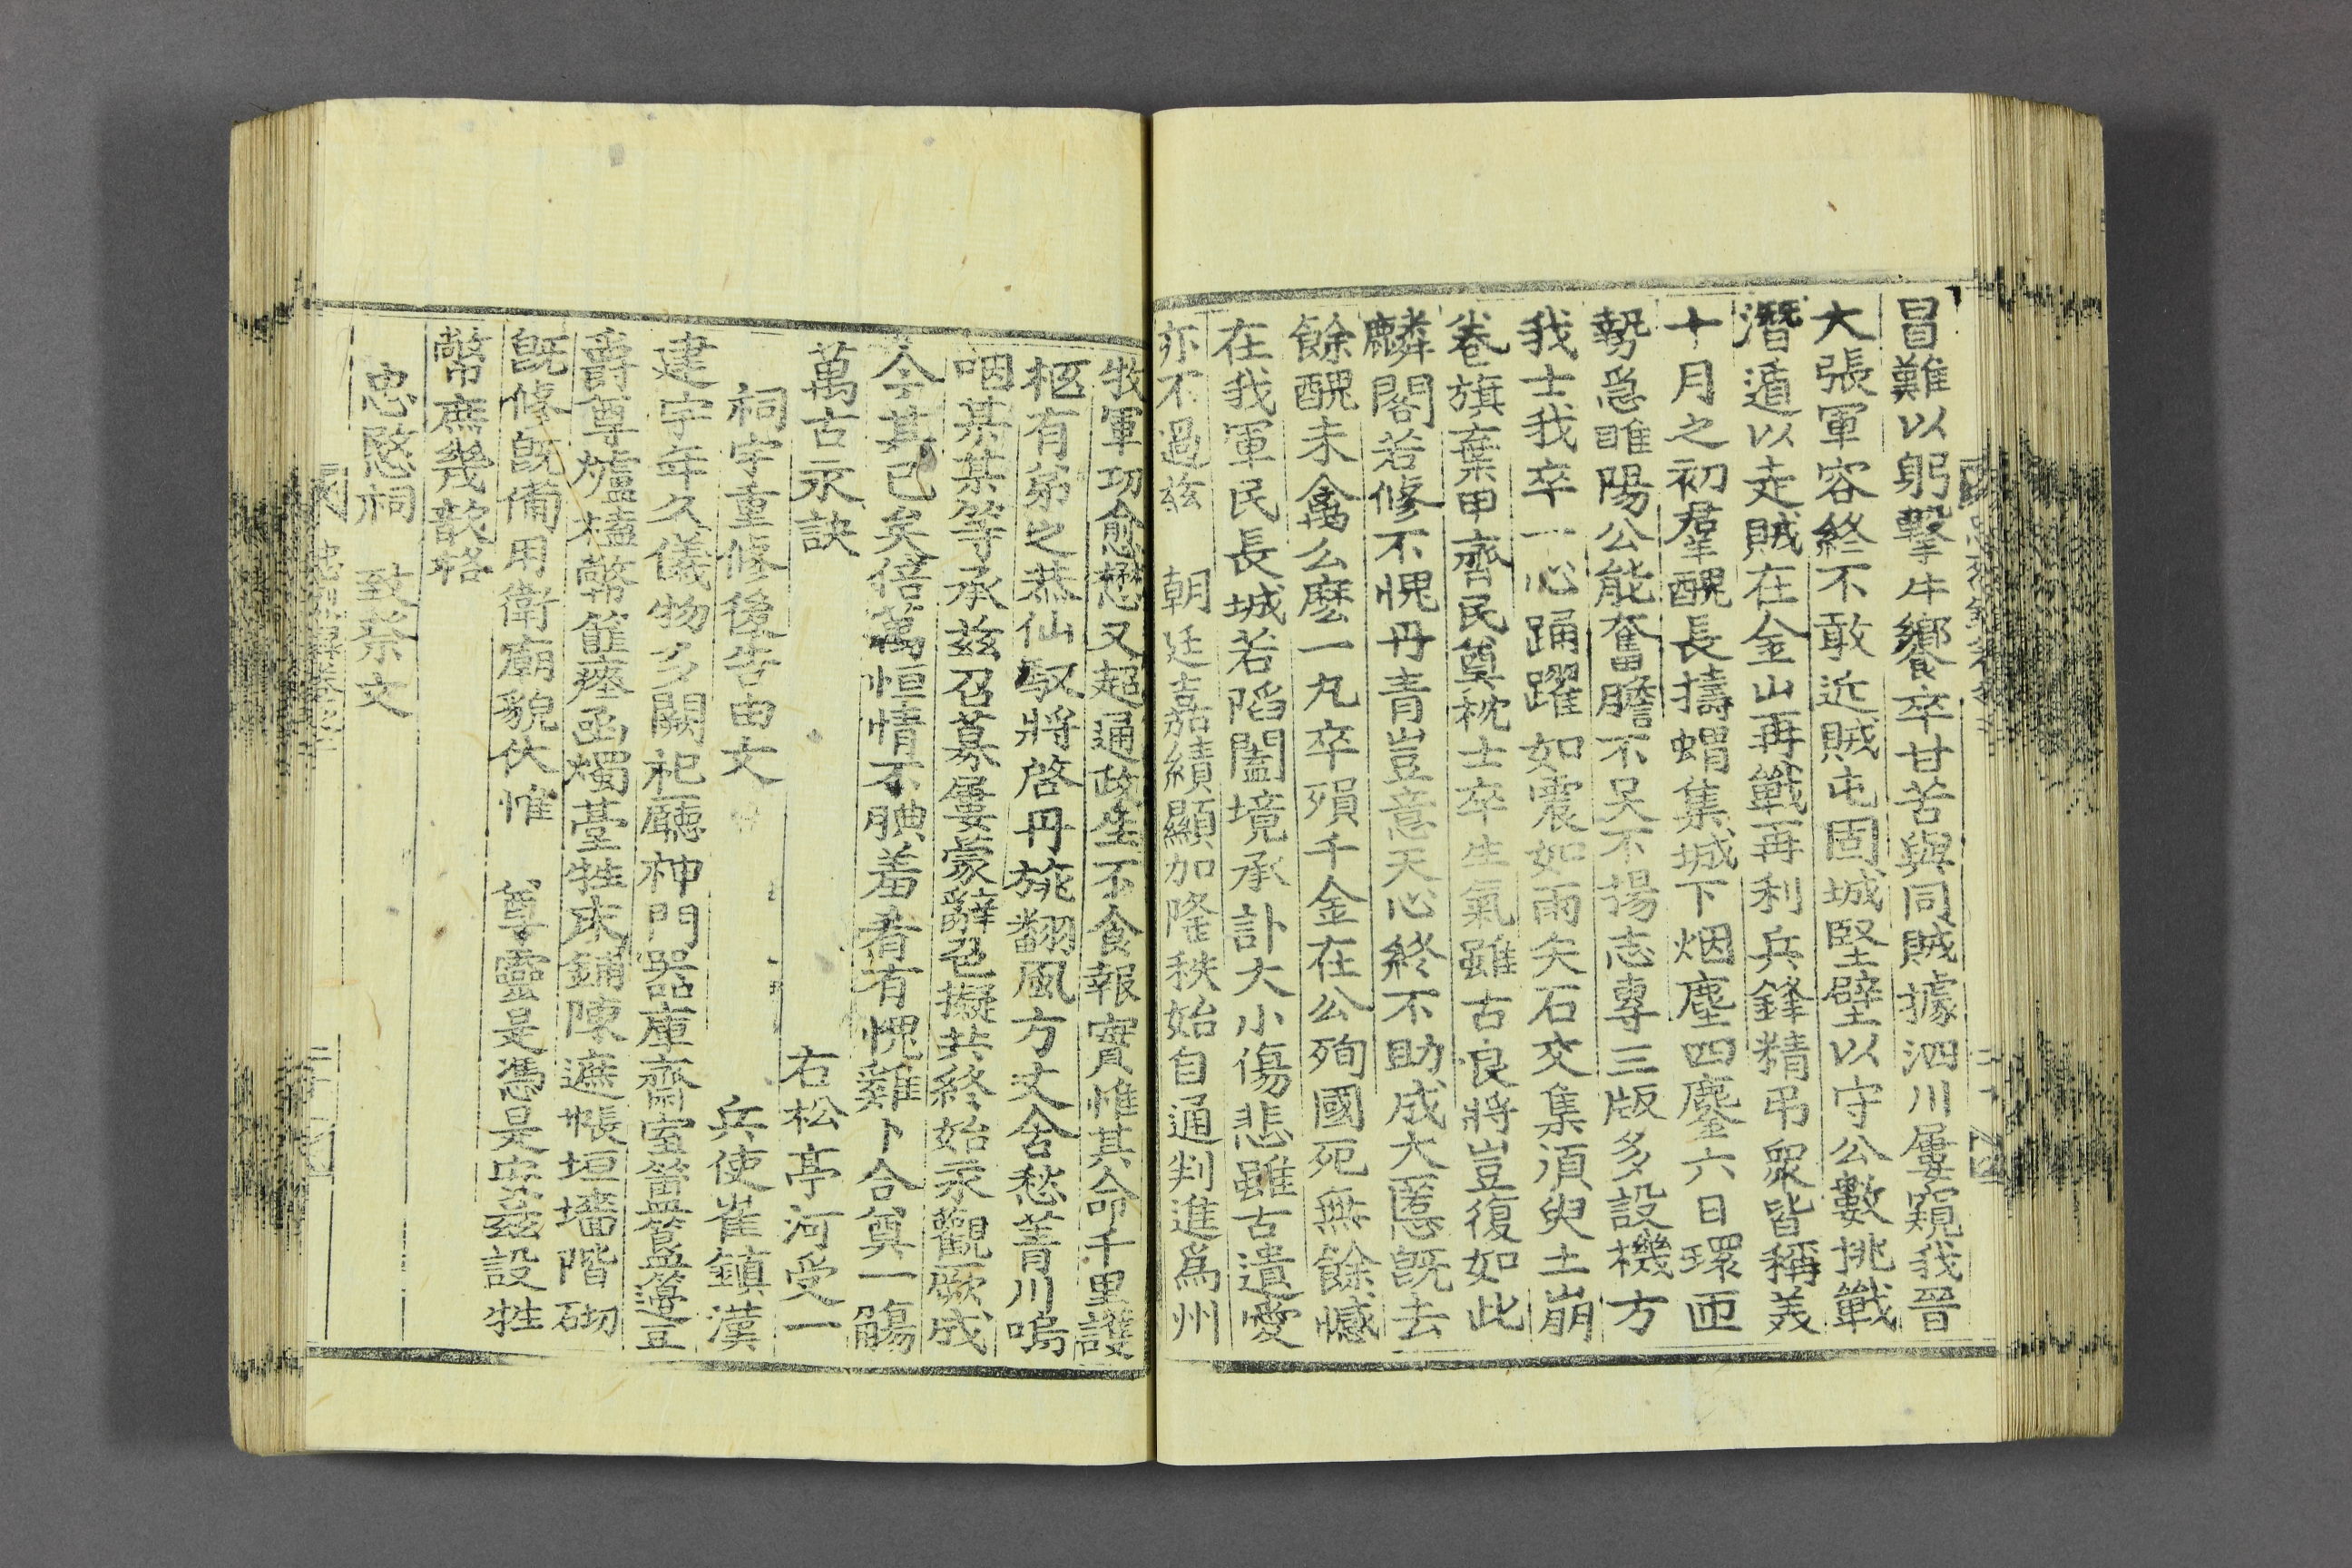 冒難以躬擊牛饗卒甘苦與同賊據泗川屢窺我晉
大張軍容終不敢近賊屯固城堅壁以守公數挑戰
潛遁以走賊在金山再戰再利兵鋒精弔衆皆稱羙
十月之初羣醜長擣蝟集城下烟塵四鏖六日環匝
勢急睢陽公能奮膽不吴不揚志專三版多設機方
我士我卒一心踊躍如震如雨矢石交集湏臾土崩
卷旗棄甲齊民奠枕士卒生氣雖古良將豈復如此
麟閣若修不愧丹青豈意天心終不助成大慝旣去
餘醜未禽么麽一丸卒殞千金在公殉國死無餘憾
在我軍民長城若陷闔境承訃大小傷悲雖古遺愛
亦不過玆 朝廷嘉績顯加隆秩始自通判進爲州
牧軍功愈懋又超通政生不食報實惟其命千里護
柩有弟之恭仙馭將啓丹旐翻風方丈含愁菁川嗚
咽某某等承玆召募屢蒙辭色擬共終始永觀厥成
今其已矣倍萬恒情不腆羞肴有愧雞卜合奠一觴
萬古永訣
右松亭河受一
祠宇重修後告由文
兵使崔鎭漢
建宇年久儀物多闕祀廳神門器庫齋室簠簋籩豆
爵尊爐榼幣篚座函燭臺牲床鋪陳遮帳垣墻階砌
旣修旣備用衛廟貌伏惟 尊靈是憑是安玆設牲
幣庶幾歆格
忠愍祠 致祭文